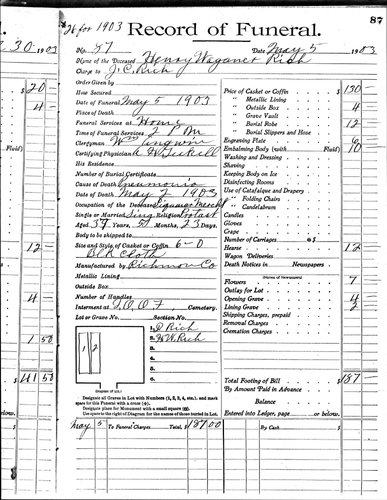 87
26 for 1903 Record of Funeral.
2. 30. 1903 No. 87 Date May 5 1903
Name of the Deceased Henry Waganer Rich
Charge to J. C. Rich
Order Given by
How Secured
Date of Funeral May 5 1903
Place of Death
Funeral Services at Home
Time of Funeral Services 2 P M
Clergyman Wm
Certifying Physician
His Residence
Number of Burial Certificate
Cause of Death Pneumonia
Date of Death May 2 1903
Occupation of the Deceased
Single or Married Sing Religion Protest
Aged 37 Years, Months, 23 Days
Body to be shipped to
Size and Style of Casket or Coffin 6-0
Blk Cloth
Manufactured by Richmon Co
Metallic Lining
Outside Box
Number of Handles
Interment at I.O.O.F Cemetery.
Lot or Grave No. Section No.
1 2
1. D Rich
2. H W Rich
3.
4.
5.
6.
(Diagram of Lot.)
Designate all Graves in Lot with Numbers (1, 2, 3, 4, etc.), and mark
space for this Funeral with a cross (+).
Designate place for Monument with a small square (□).
Use space to the right of Diagram for the names of those buried in Lot.
Price of Casket or Coffin $130 —
" Metallic Lining
" Outside Box 4
" Grave Vault
" Burial Robe 12
" Burial Slippers and Hose
Engraving Plate 6
Embalming Body (with Fluid) 10
Washing and Dressing
Shaving
Keeping Body on Ice
Disinfecting Rooms
Use of Catafalque and Drapery
" Folding Chairs
" Candelabrum
Candles
Gloves
Crape
Number of Carriages @ $
Hearse 12
Wagon Deliveries
Death Notices in Newspapers
(Names of Newspapers)
Flowers 7
Outlay for Lot
Opening Grave 4
Lining Grave 2
Shipping Charges, prepaid
Removal Charges
Cremation Charges
Total Footing of Bill $187 —
By Amount Paid in Advance
Balance
Entered into Ledger, page or below.
May 5 To Funeral Charges Total, $187.00 By Cash $
$20 —
4 —
Fluid)
12 —
4 —
1 50
$41 50
below.
$